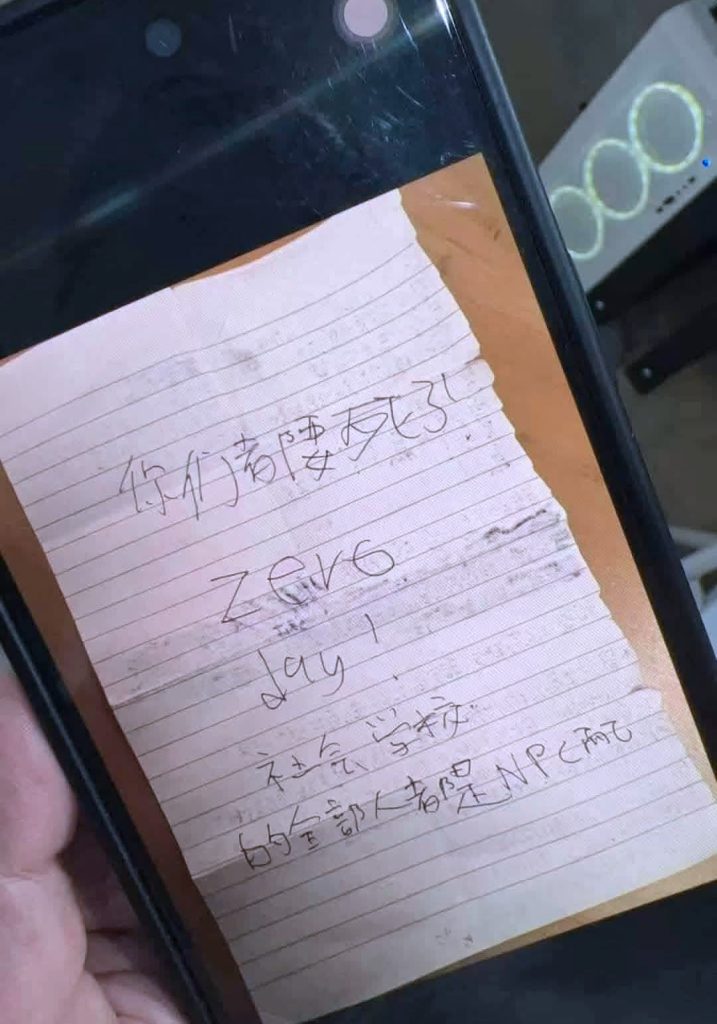 你们都要死了
zero
day!
社会学校
的全部人都是NPC而己